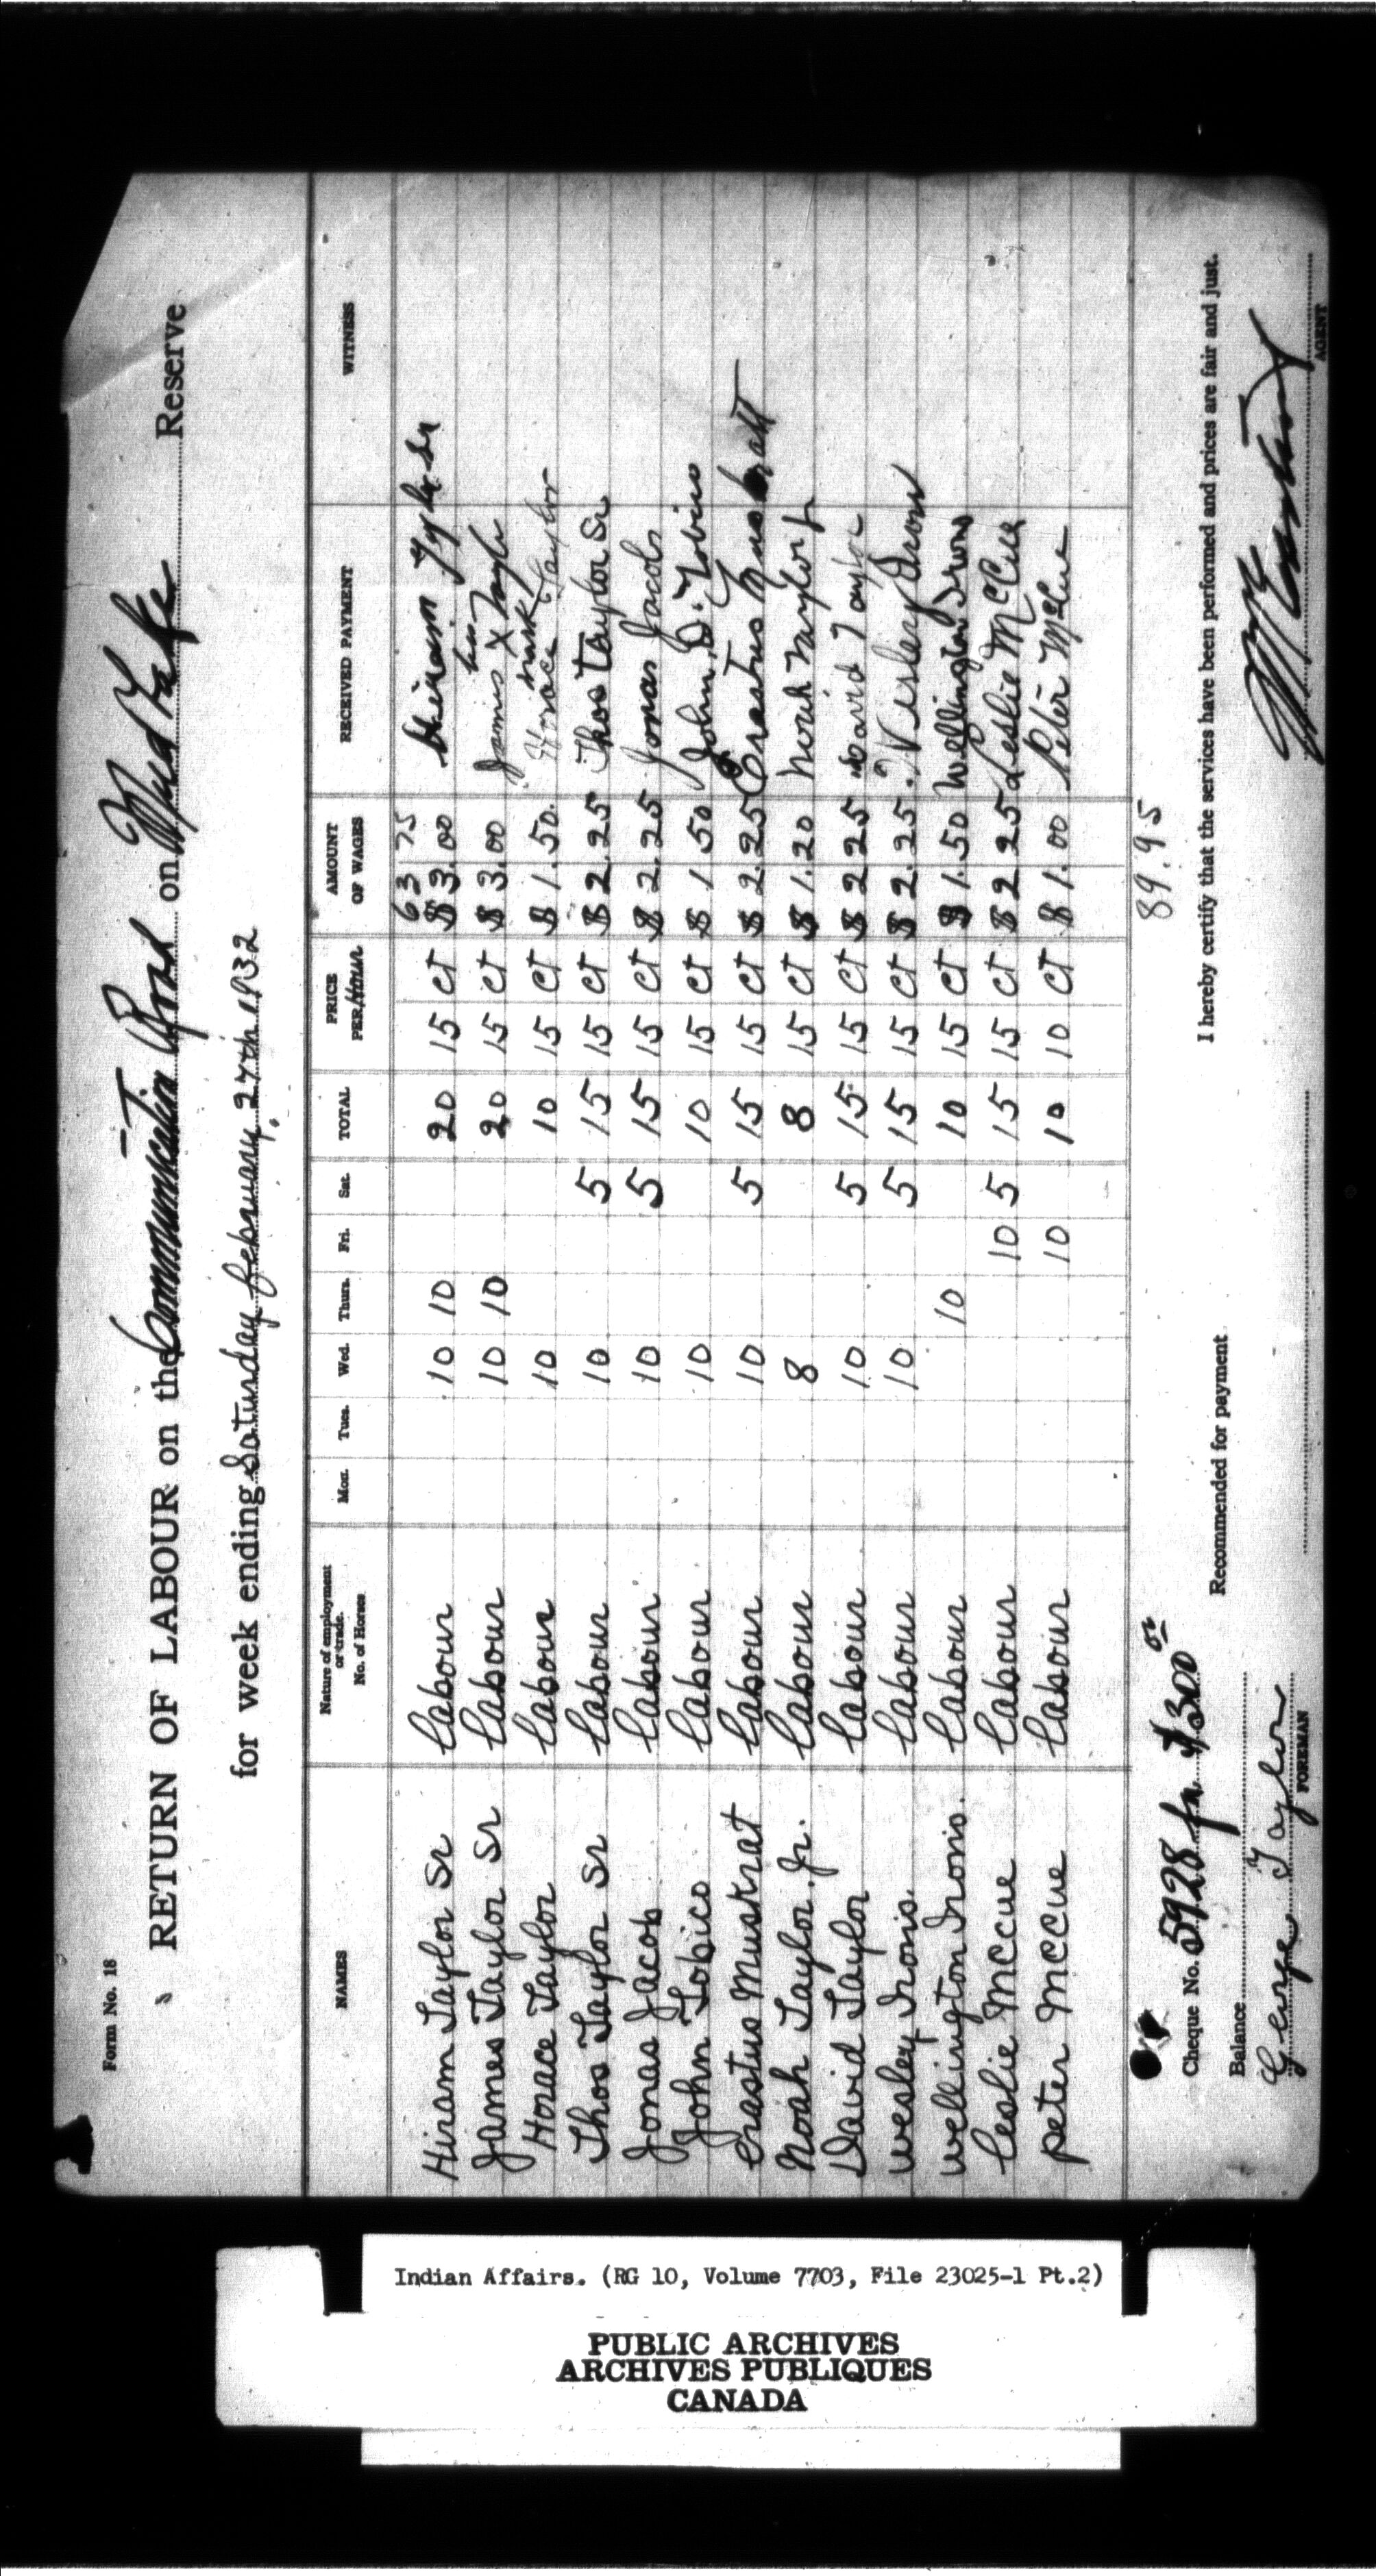 Form No. 18
RETURN OF LABOUR on the Communication Road on Mud Lake Reserve
for week ending Saturday February 27th 1932
NAMES Nature of employment or trade. No. of Horses Mon. Tues. Wed. Thurs. Fri. Sat. TOTAL PRICE PER Hour AMOUNT OF WAGES RECEIVED PAYMENT WITNESS
63 75
Hiram Taylor Sr Labour 10 10 20 15 ct $ 3.00 Hiram Taylor Sr
James Taylor Sr Labour 10 10 20 15 ct $ 3.00 James his X mark Taylor
Horace Taylor Labour 10 10 15 ct $ 1.50. Horace Taylor
Thos Taylor Sr Labour 10 5 15 15 ct $ 2.25 Thos Taylor Sr
Jonas Jacob Labour 10 5 15 15 ct $ 2.25 Jonas Jacobs
John Tobico Labour 10 10 15 ct $ 1.50 John D. Tobico
Erastus Muskrat Labour 10 5 15 15 ct $ 2.25 Erastus Muskratt
Noah Taylor Jr. Labour 8 8 15 ct $ 1.20 Noah Taylor Jr
David Taylor Labour 10 5 15 15 ct $ 2 25 David Taylor
Wesley Irons. Labour 10 5 15 15 ct $ 2.25. Wesley Irons
Wellington Irons. Labour 10 10 15 ct $ 1.50 Wellington Irons
Leslie McCue Labour 10 5 15 15 ct $ 2 25 Leslie McCue
Peter McCue Labour 10 10 10 ct $ 1.00 Peter McCue
89.95
Cheque No. 5928 for $300 00
I hereby certify that the services have been performed and prices are fair and just.
Balance
Recommended for payment
George Taylor
FOREMAN
AGENT
Indian Affairs. (RG 10, Volume 7703, File 23025-1 Pt.2)
PUBLIC ARCHIVES
ARCHIVES PUBLIQUES
CANADA